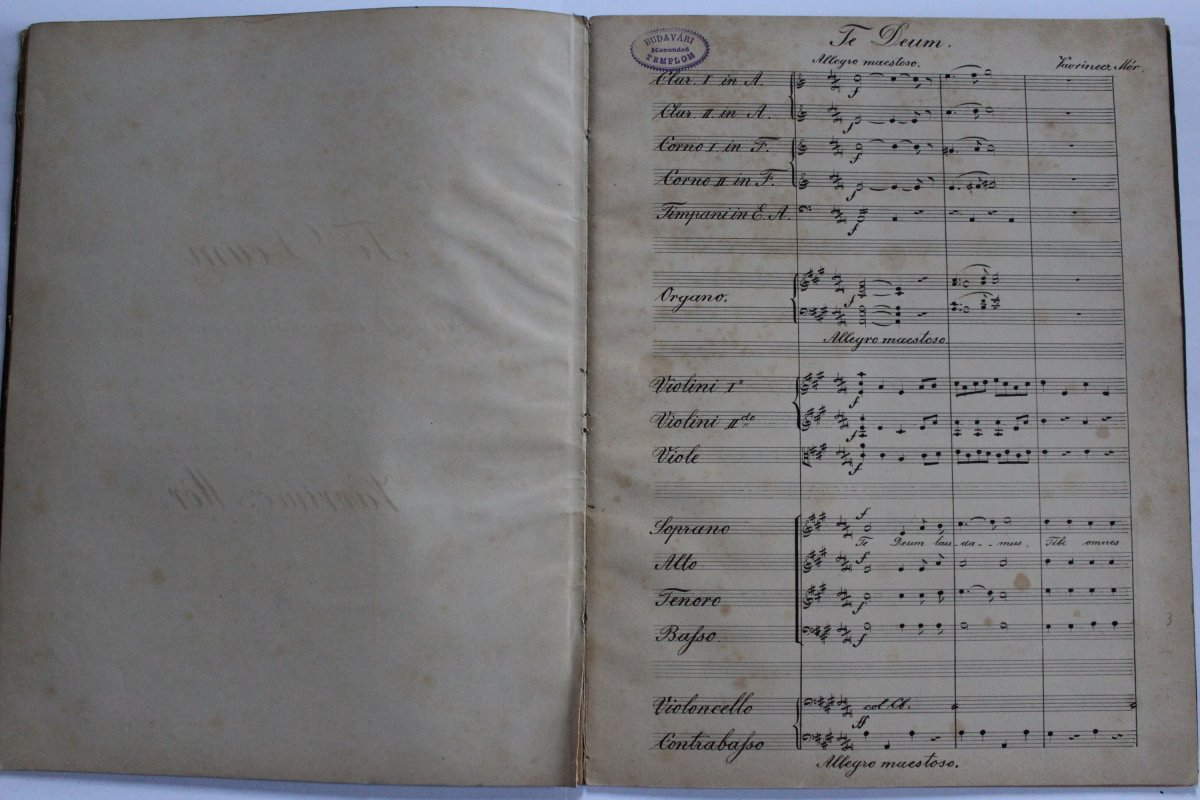 Te Deum.
BUDAVÁRI
Koronázó
TEMPLOM
Allegro maestoso.
Vavrinecz Mór.
Clar. I in A.
Clar. II. in A.
Corno I. in F.
Corno II in F.
Timpani in E. A.
Organo.
Allegro maestoso
Violini Iº
Violini IIdo
Viole
Soprano
Te Deum lau-da--mus, Tibi omnes
Alto
Tenoro
Baſso.
Violoncello
col Cb.
Contrabaſso
Allegro maestoso.
3